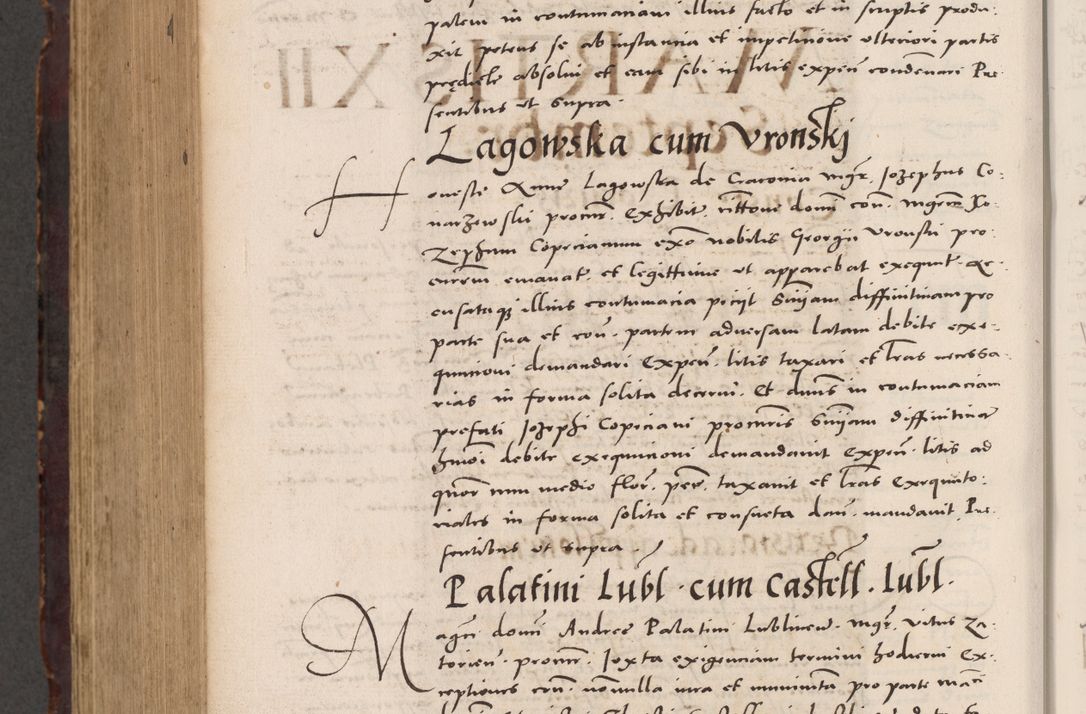 patem in contumaciam illius facto et in scriptis produ-
xit petens se ab instancia et impeticione ulteriori partis
prędicte absolui et eam sibi in litis expeñ condemnari Pre-
sentibus ut supra.
Lagowska cum Vronskj
Honeste Anne Lagowska de Cracouia mgr̃. Jozephus Co-
narzewski procur̃. Exhibit. cittone domi coñ. mgrm̃ Jo-
zephum Copecianum exõ nobilis Georgii Vronski pro-
curem emanat. et legittime ut apparebat exequut. Ac-
cusatiqꝫ illius contumacia peciit Sniam diffinitinam pro
parte sua et coñ. partem aduersam latam debite exe-
qucioni demandari Expeñ. litis taxari et lras necessa-
rias in forma solita decerni. Et dnus in contumaciam
prefati Jozephi Copeciani procuris Sniam diffinitiuã
hmõi debite exequucioni demandauit Expeñ. litis ad
quor̃ num medio flor̃. per. taxauit et lras Exequuto-
riales in forma solita et consueta dari mandauit. Pre-
sentibus ut supra.
Palatini Lubl. cum Castell. Lubl.
Magci domi Andree Palatini Lublineñ. mgr̃. Vitus Za-
torieñ. procur̃. Juxta exigenciam termini hodierni Ex-
cepciones coñ. nonnulla iura et munimta pro parte maci